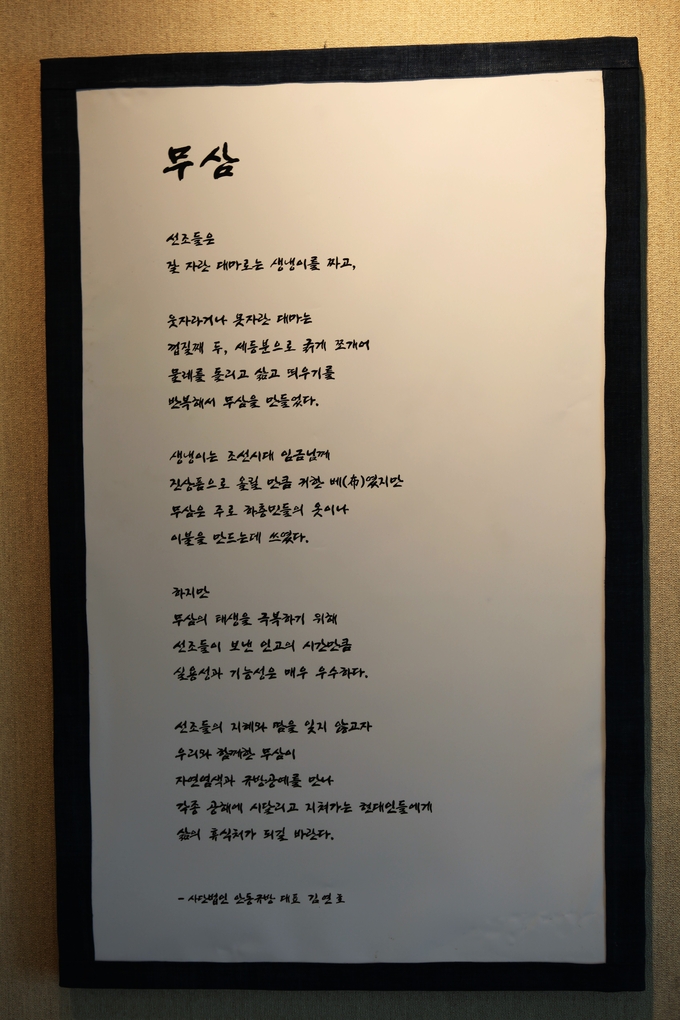 무삼
선조들은
잘 자란 대마로는 생냉이를 짜고,
웃자라거나 못자란 대마는
껍질째 두, 세등분으로 굵게 쪼개어
물레를 돌리고 삶고 띄우기를
반복해서 무삼을 만들었다.
생냉이는 조선시대 임금님께
진상품으로 올릴 만큼 귀한 베(布)였지만
무삼은 주로 하층민들의 옷이나
이불을 만드는데 쓰였다.
하지만
무삼의 태생을 극복하기 위해
선조들이 보낸 인고의 시간만큼
실용성과 기능성은 매우 우수하다.
선조들의 지혜와 땀을 잊지 않고자
우리와 함께한 무삼이
자연염색과 규방공예를 만나
각종 공해에 시달리고 지쳐가는 현대인들에게
삶의 휴식처가 되길 바란다.
- 사단법인 안동규방 대표 김연호